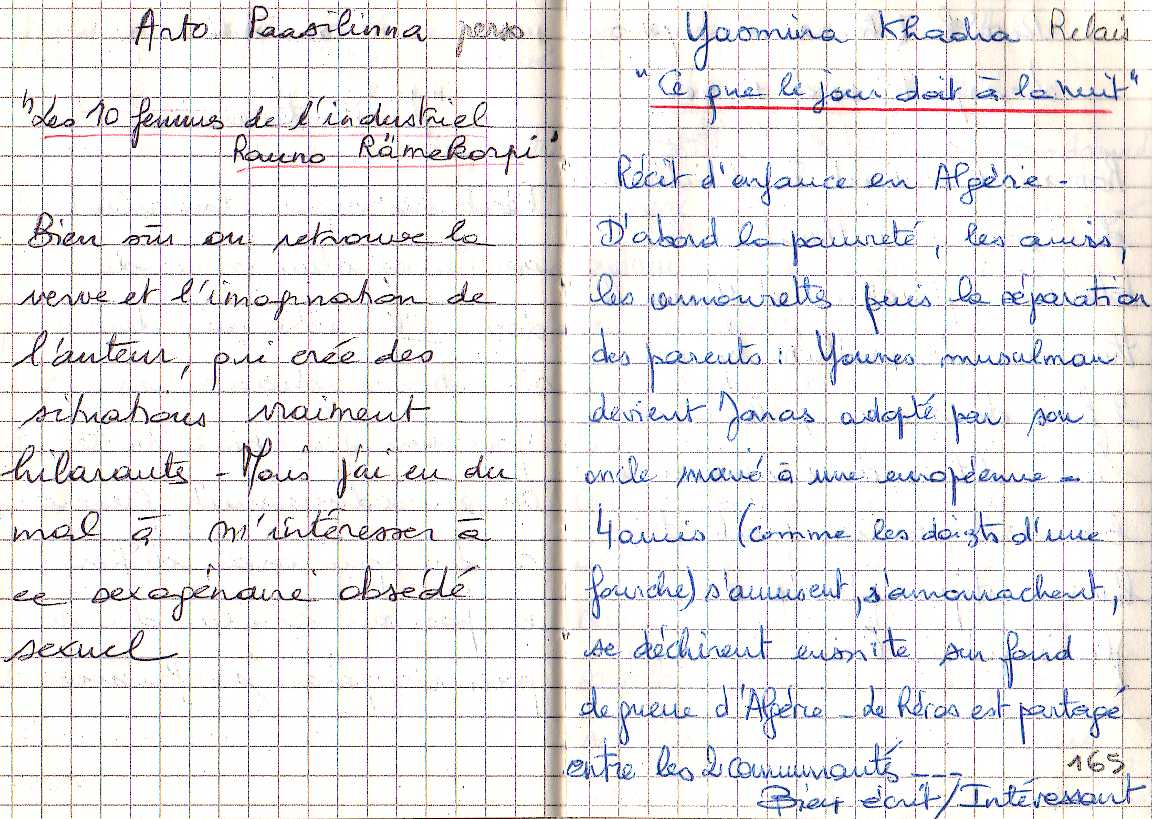 Arto Paasilinna perso
"Les 10 femmes de l'industriel
Rauno Rämekorpi"
Bien sûr on retrouve la
verve et l'imagination de
l'auteur, qui crée des
situations vraiment
hilarants - Mais j'ai eu du
mal à m'intéresser à
ce sexagénaire obsédé
sexuel
Yasmina Khadra Relais
"Ce que le jour doit à la nuit"
Récit d'enfance en Algérie -
D'abord la pauvreté, les amis,
les amourettes puis la séparation
des parents : Younes musulman
devient Jonas adopté par son
oncle marié à une européenne -
4 amis (comme les doigts d'une
fourche) s'amusent, s'amourachent,
se déchirent ensuite sur fond
de guerre d'Algérie - Le héros est partagé
entre les 2 communautés ---
165
Bien écrit / Intéressant